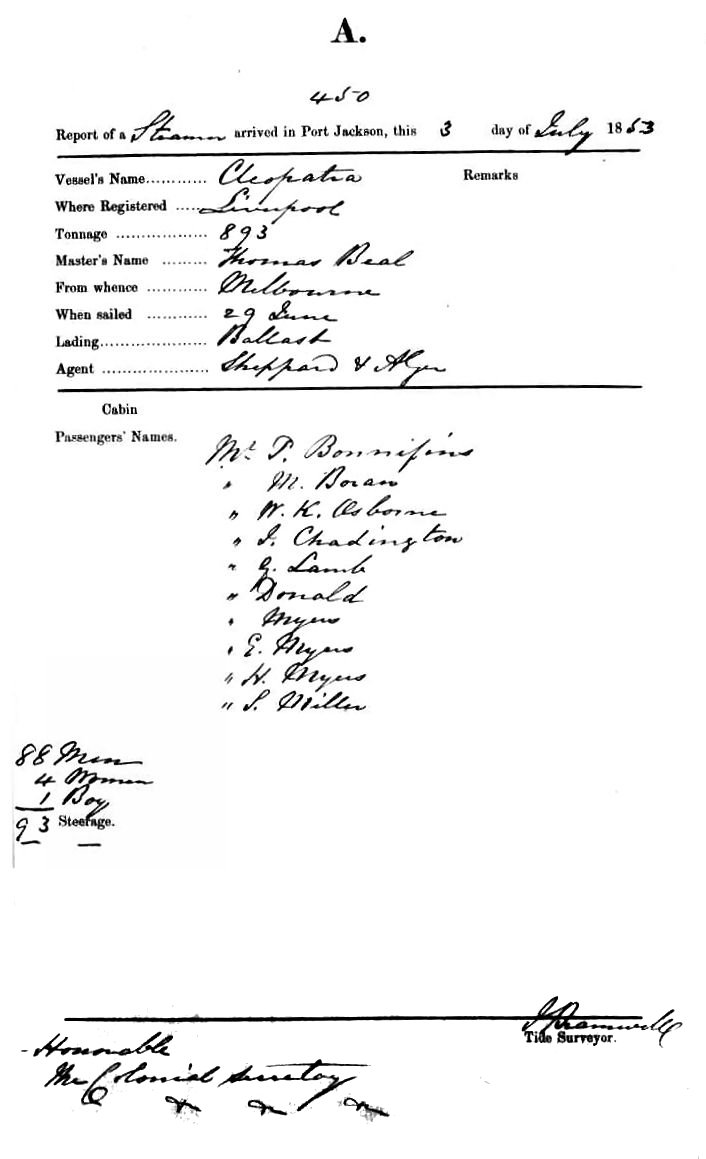 A.
450
Report of a Steamer arrived in Port Jackson, this 3 day of July 1853
Vessel's Name............ Cleopatra Remarks
Where Registered ..... Liverpool
Tonnage .................. 893
Master's Name ......... Thomas Beal
From whence ............ Melbourne
When sailed ............ 29 June
Lading..................... Ballast
Agent ..................... Sheppard & Alger
Cabin
Passengers' Names.
Mr. T. Bonnifins
" M. Boran
" W. K. Osborne
" J. Chadington
" G. Lamb
" Donald
" Myers
" E. Myers
" H. Myers
" S. Miller
88 Men
4 Women
1 Boy
93 Steerage.
J Bramwell
Tide Surveyor.
Honorable
The Colonial Secretary